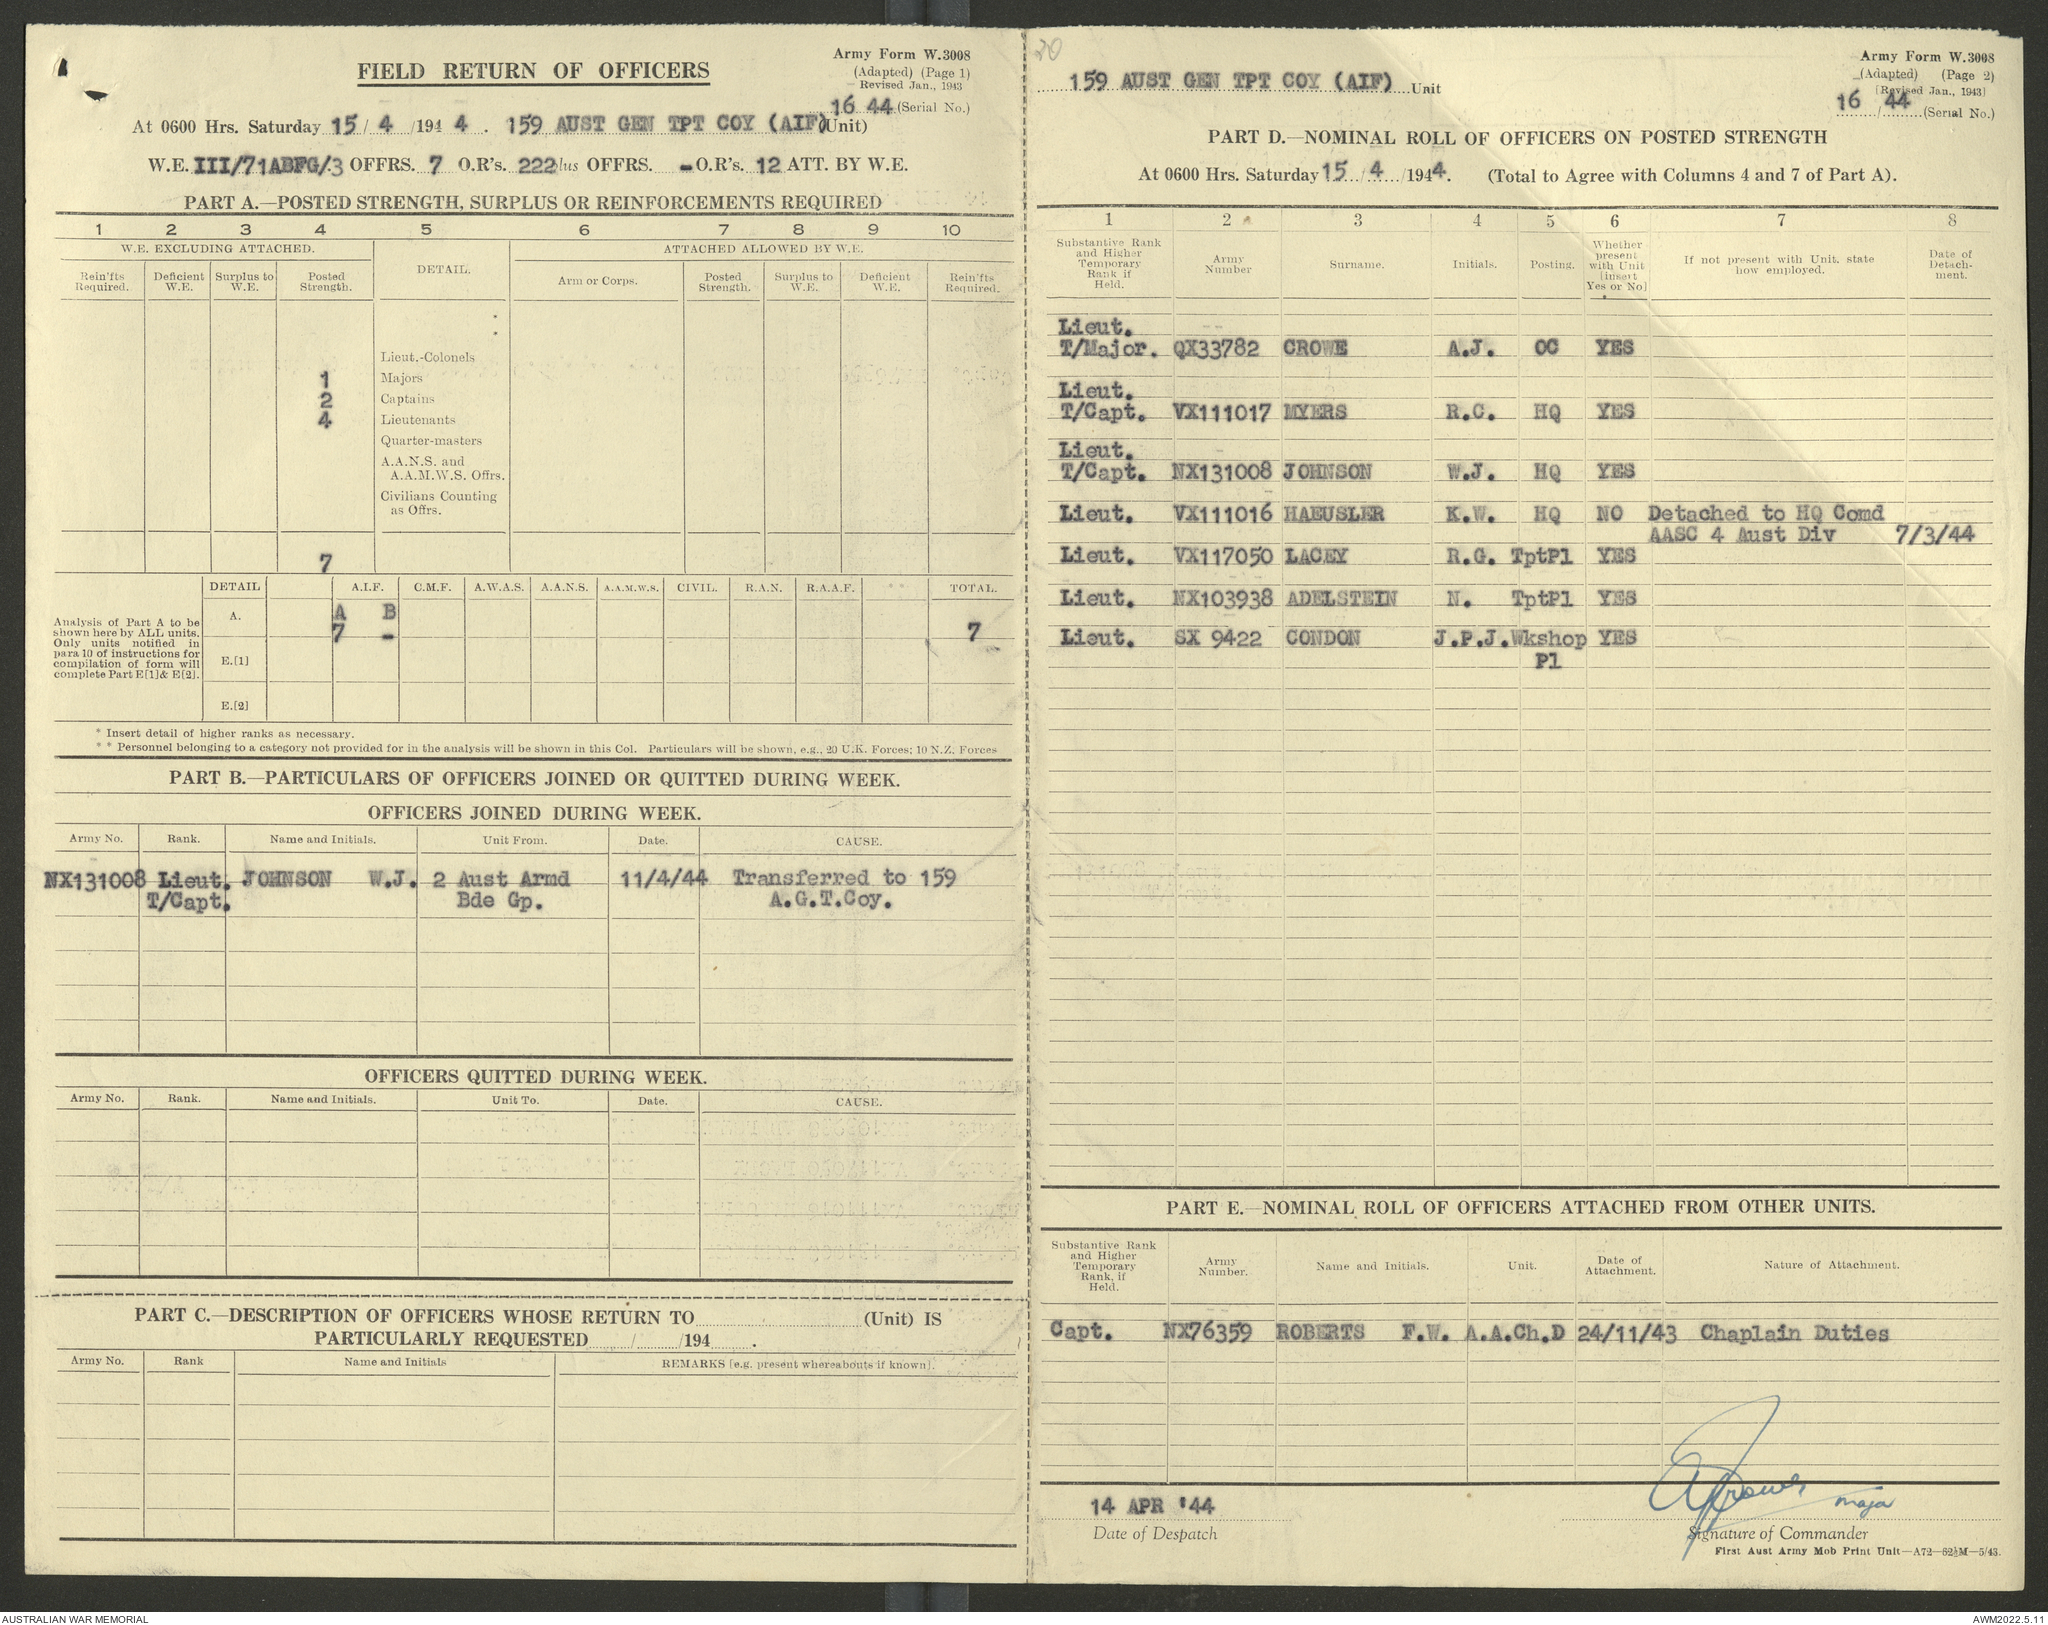 Army Form W.3008
(Adapted) (Page 1)
Revised Jan., 1943
FIELD RETURN OF OFFICERS
16 44 (Serial No.)
At 0600 Hrs. Saturday 15/4/1944. 159 AUST GEN TPT COY (AIF) (Unit)
W.E. III/71ABFG/.3 OFFRS. 7 O.R's. 222 plus OFFRS. - O.R's. 12 ATT. BY W.E.
PART A.—POSTED STRENGTH, SURPLUS OR REINFORCEMENTS REQUIRED
1 2 3 4 5 6 7 8 9 10
W.E. EXCLUDING ATTACHED. DETAIL. ATTACHED ALLOWED BY W.E.
Rein'fts Required. Deficient W.E. Surplus to W.E. Posted Strength. Arm or Corps. Posted Strength. Surplus to W.E. Deficient W.E. Rein'fts Required.
*
*
Lieut.-Colonels
1 Majors
2 Captains
4 Lieutenants
Quarter-masters
A.A.N.S. and
A.A.M.W.S. Offrs.
Civilians Counting
as Offrs.
7
DETAIL A.I.F. C.M.F. A.W.A.S. A.A.N.S. A.A.M.W.S. CIVIL. R.A.N. R.A.A.F. TOTAL.
Analysis of Part A to be
shown here by ALL units.
Only units notified in
para 10 of instructions for
compilation of form will
complete Part E[1] & E[2].
A. A B
7 - 7
E.[1]
E.[2]
* Insert detail of higher ranks as necessary.
* * Personnel belonging to a category not provided for in the analysis will be shown in this Col. Particulars will be shown, e.g., 20 U.K. Forces; 10 N.Z. Forces
PART B.—PARTICULARS OF OFFICERS JOINED OR QUITTED DURING WEEK.
OFFICERS JOINED DURING WEEK.
Army No. Rank. Name and Initials. Unit From. Date. CAUSE.
NX131008 Lieut. JOHNSON W.J. 2 Aust Armd 11/4/44 Transferred to 159
T/Capt. Bde Gp. A.G.T.Coy.
OFFICERS QUITTED DURING WEEK.
Army No. Rank. Name and Initials. Unit To. Date. CAUSE.
PART C.—DESCRIPTION OF OFFICERS WHOSE RETURN TO (Unit) IS
PARTICULARLY REQUESTED / /194 .
Army No. Rank Name and Initials REMARKS [e.g. present whereabouts if known].
20
Army Form W.3008
(Adapted) (Page 2)
[Revised Jan., 1943]
159 AUST GEN TPT COY (AIF) Unit
16 / 44 (Serial No.)
PART D.—NOMINAL ROLL OF OFFICERS ON POSTED STRENGTH
At 0600 Hrs. Saturday 15/4/1944. (Total to Agree with Columns 4 and 7 of Part A).
1 2 3 4 5 6 7 8
Substantive Rank and Higher Temporary Rank if Held. Army Number Surname. Initials. Posting. Whether present with Unit [insert Yes or No] If not present with Unit, state how employed. Date of Detachment.
Lieut.
T/Major. QX33782 CROWE A.J. OC YES
Lieut.
T/Capt. VX111017 MYERS R.C. HQ YES
Lieut.
T/Capt. NX131008 JOHNSON W.J. HQ YES
Lieut. VX111016 HAEUSLER K.W. HQ NO Detached to HQ Comd
AASC 4 Aust Div 7/3/44
Lieut. VX117050 LACEY R.G. TptPl YES
Lieut. NX103938 ADELSTEIN N. TptPl YES
Lieut. SX 9422 CONDON J.P.J. Wkshop YES
Pl
PART E.—NOMINAL ROLL OF OFFICERS ATTACHED FROM OTHER UNITS.
Substantive Rank and Higher Temporary Rank, if Held. Army Number. Name and Initials. Unit. Date of Attachment. Nature of Attachment.
Capt. NX76359 ROBERTS F.W. A.A.Ch.D 24/11/43 Chaplain Duties
14 APR '44
Date of Despatch
AJCrowe Major
Signature of Commander
First Aust Army Mob Print Unit—A72—62½M—5/43.
AUSTRALIAN WAR MEMORIAL
AWM2022.5.11